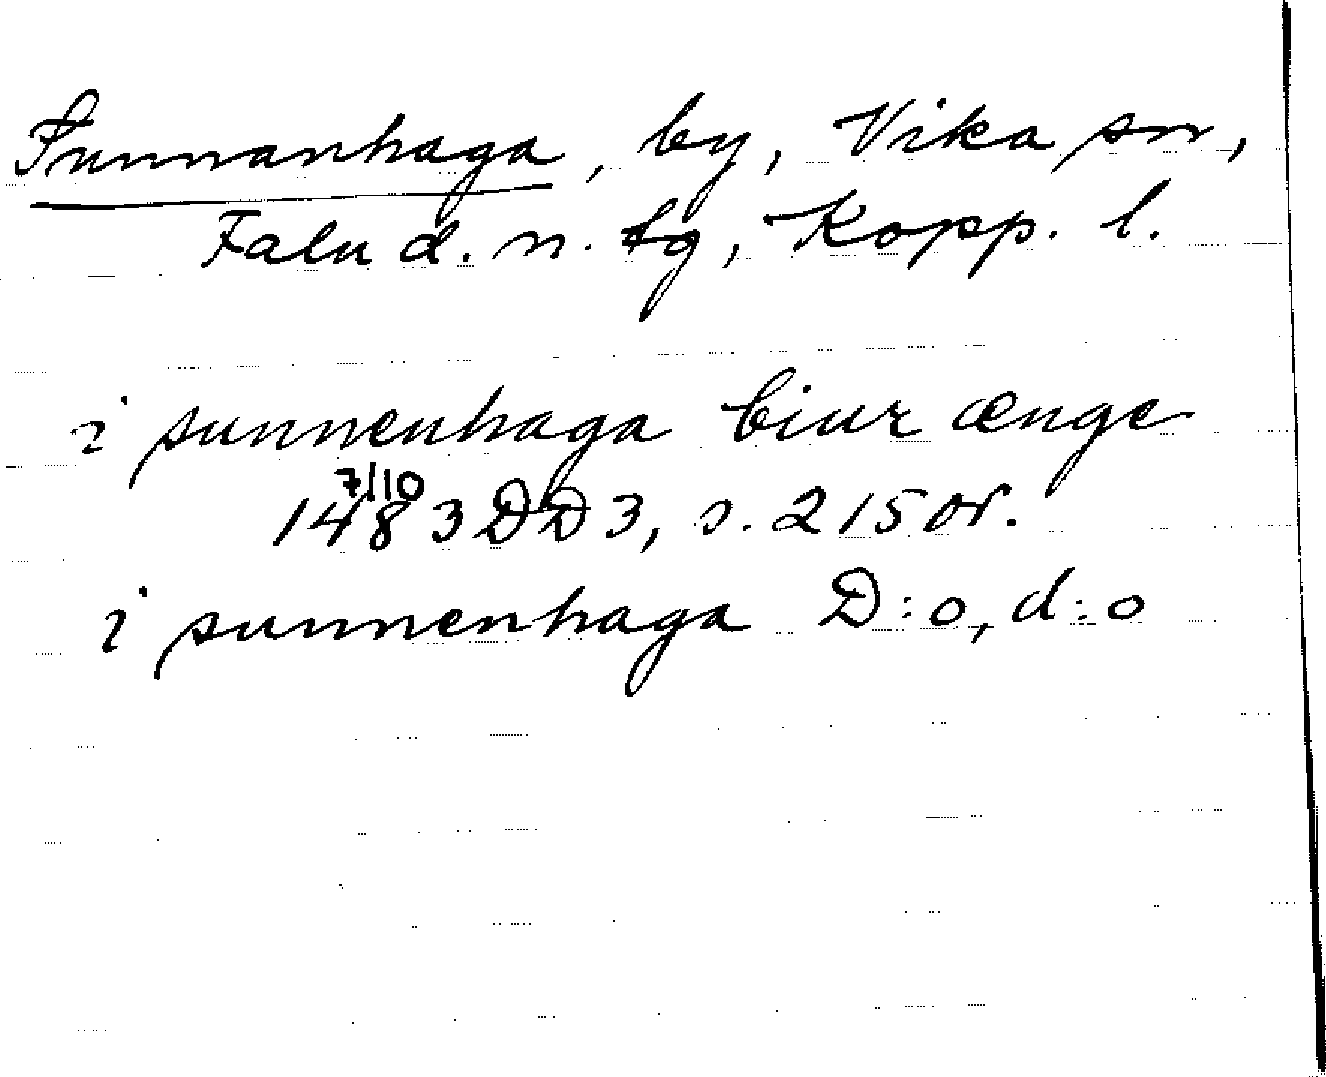 Sunnanhaga, by, Vika sn,
Falu d. n. tg, Kopp. l.
i sunnenhaga biur ænge
7/10
1483 DD3, s. 215 or.
i sunnenhaga D:o, d:o